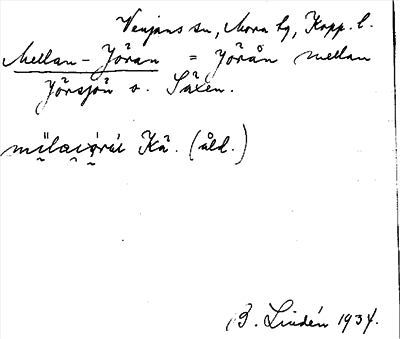 Venjans sn, Mora tg, Kopp. l.
Mellan-Yöran = Yörån mellan
Yörsjön o. Säxen.
Kä. (åld.)
B. Lindén 1934.